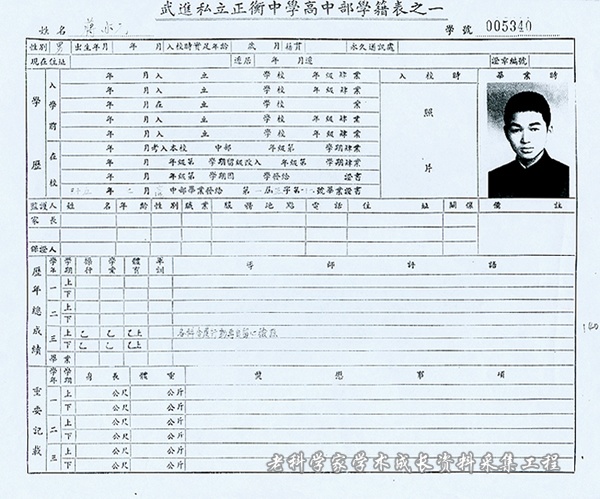 武進私立正衡中學高中部學籍表之一
姓名 學號 005340
性別 男 出生年月 年 月 入校時實足年齡 歲 月 籍貫 永久通訊處
現在住址 遷居 年 月遷 證章編號
學歷 入學前 年 月入 立 學校 年級肄業 入校時照片 畢業時
年 月入 立 學校 年級肄業
年 月在 立 學校 業
年 月入 立 學校 年級肄業
年 月入 立 學校 年級肄業
在校 年 月考入本校 中部 年級第 學期肄業
年 月 年級第 學期留級改入 年級第 學期肄業
年 月 年級第 學期 發給 證書
年 二月 中部畢業發給 第一屆 字第 號畢業證書
監護人 姓名 年齡 性別 職業 服務地點 電話 住址 關係 備註
家長
保證人
歷年總成績 學年 學期 操行 學業 體育 軍訓 導師評語
一 上
下
二 上
下
三 上 乙 乙 乙上
下 乙 乙 乙上
畢業
140
重要記載 學年 學期 身長 體重 獎懲事項
一 上 公尺 公斤
下 公尺 公斤
二 上 公尺 公斤
下 公尺 公斤
三 上 公尺 公斤
下 公尺 公斤
老科学家学术成长资料采集工程